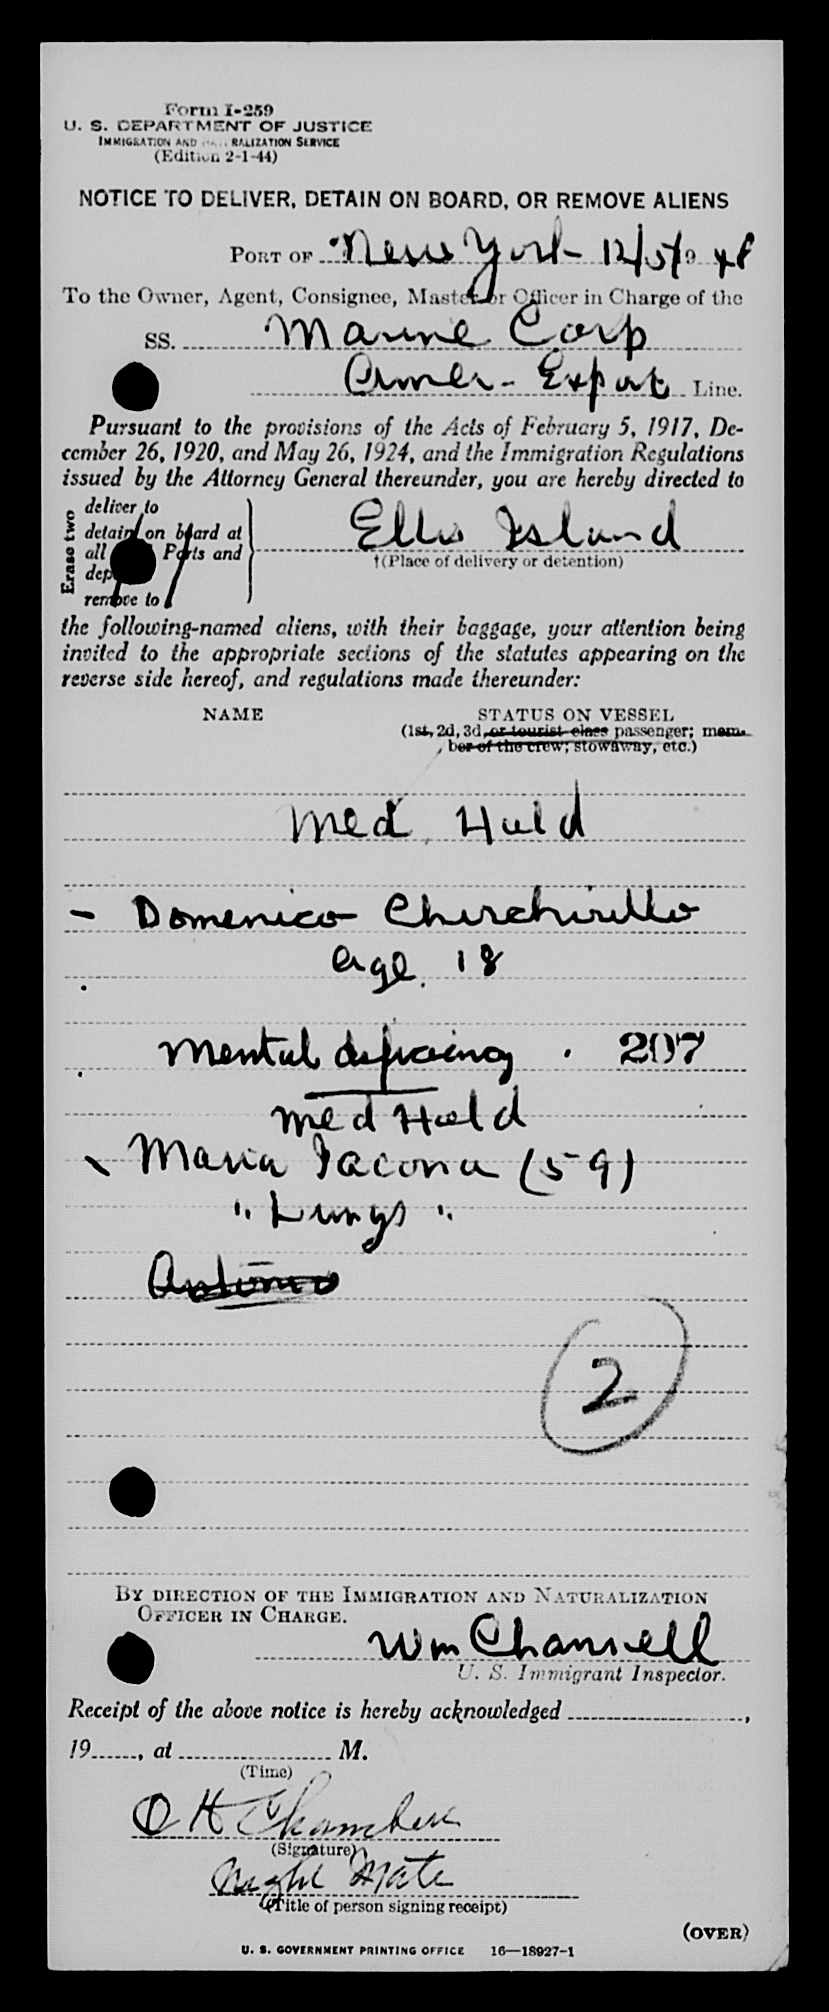 Form I-259
U. S. DEPARTMENT OF JUSTICE
IMMIGRATION AND RALIZATION SERVICE
(Edition 2-1-44)
NOTICE TO DELIVER, DETAIN ON BOARD, OR REMOVE ALIENS
PORT OF New York 12/5/19 48
To the Owner, Agent, Consignee, Master or Officer in Charge of the
SS. Marine Carp
Amer-Export Line.
Pursuant to the provisions of the Acts of February 5, 1917, De-
cember 26, 1920, and May 26, 1924, and the Immigration Regulations
issued by the Attorney General thereunder, you are hereby directed to
Erase two
deliver to
detain on board at
all Ports and
dep
remove to
Ellis Island
†(Place of delivery or detention)
the following-named aliens, with their baggage, your attention being
invited to the appropriate sections of the statutes appearing on the
reverse side hereof, and regulations made thereunder:
NAME STATUS ON VESSEL
(1st, 2d, 3d, or tourist class passenger; mem-
ber of the crew; stowaway, etc.)
Med. Hold
- Domenico Churchirillo
age. 18
Mental deficiency . 207
Med Hold
Maria Iacona (59)
" Lungs "
Antonio
2
BY DIRECTION OF THE IMMIGRATION AND NATURALIZATION
OFFICER IN CHARGE.
Wm Chanvell
U. S. Immigrant Inspector.
Receipt of the above notice is hereby acknowledged ,
19 , at M.
(Time)
O H Chambers
(Signature)
Night Mate
(Title of person signing receipt)
(OVER)
U. S. GOVERNMENT PRINTING OFFICE 16—18927-1